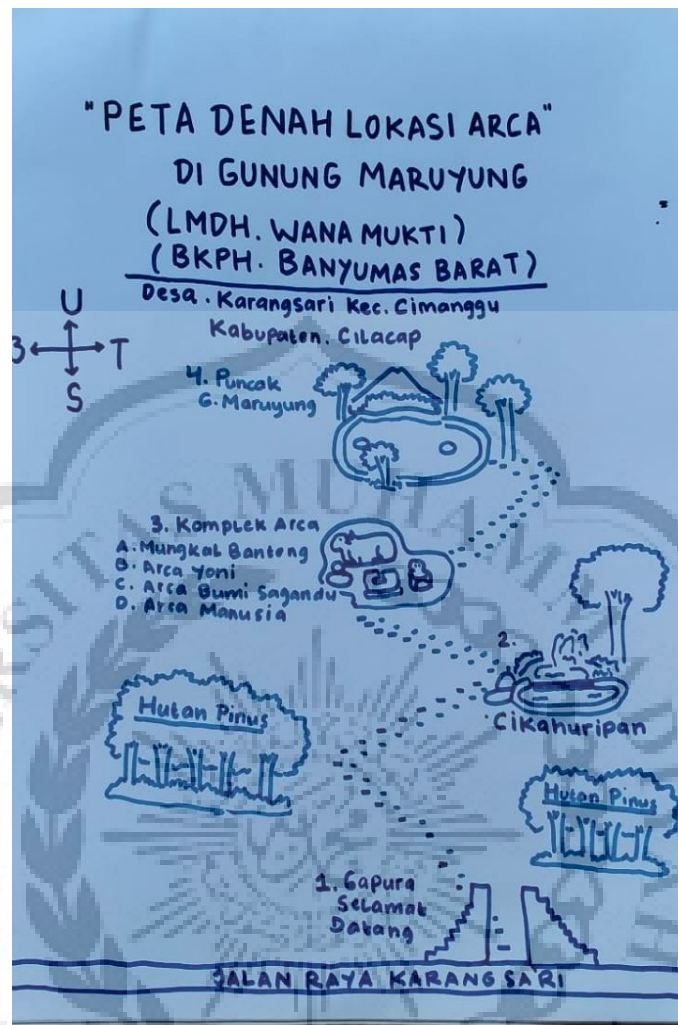 "PETA DENAH LOKASI ARCA"
DI GUNUNG MARUYUNG
(LMDH. WANA MUKTI)
(BKPH. BANYUMAS BARAT)
Desa. Karangsari Kec. Cimanggu
Kabupaten. Cilacap
U
B T
S
4. Puncak
G. Maruyung
3. Komplek Arca
A. Mungkal Banteng
B. Arca Yoni
C. Arca Bumi Sagandu
D. Arca Manusia
2.
Cikahuripan
Hutan Pinus
Hutan Pinus
1. Gapura
Selamat
Datang
JALAN RAYA KARANGSARI